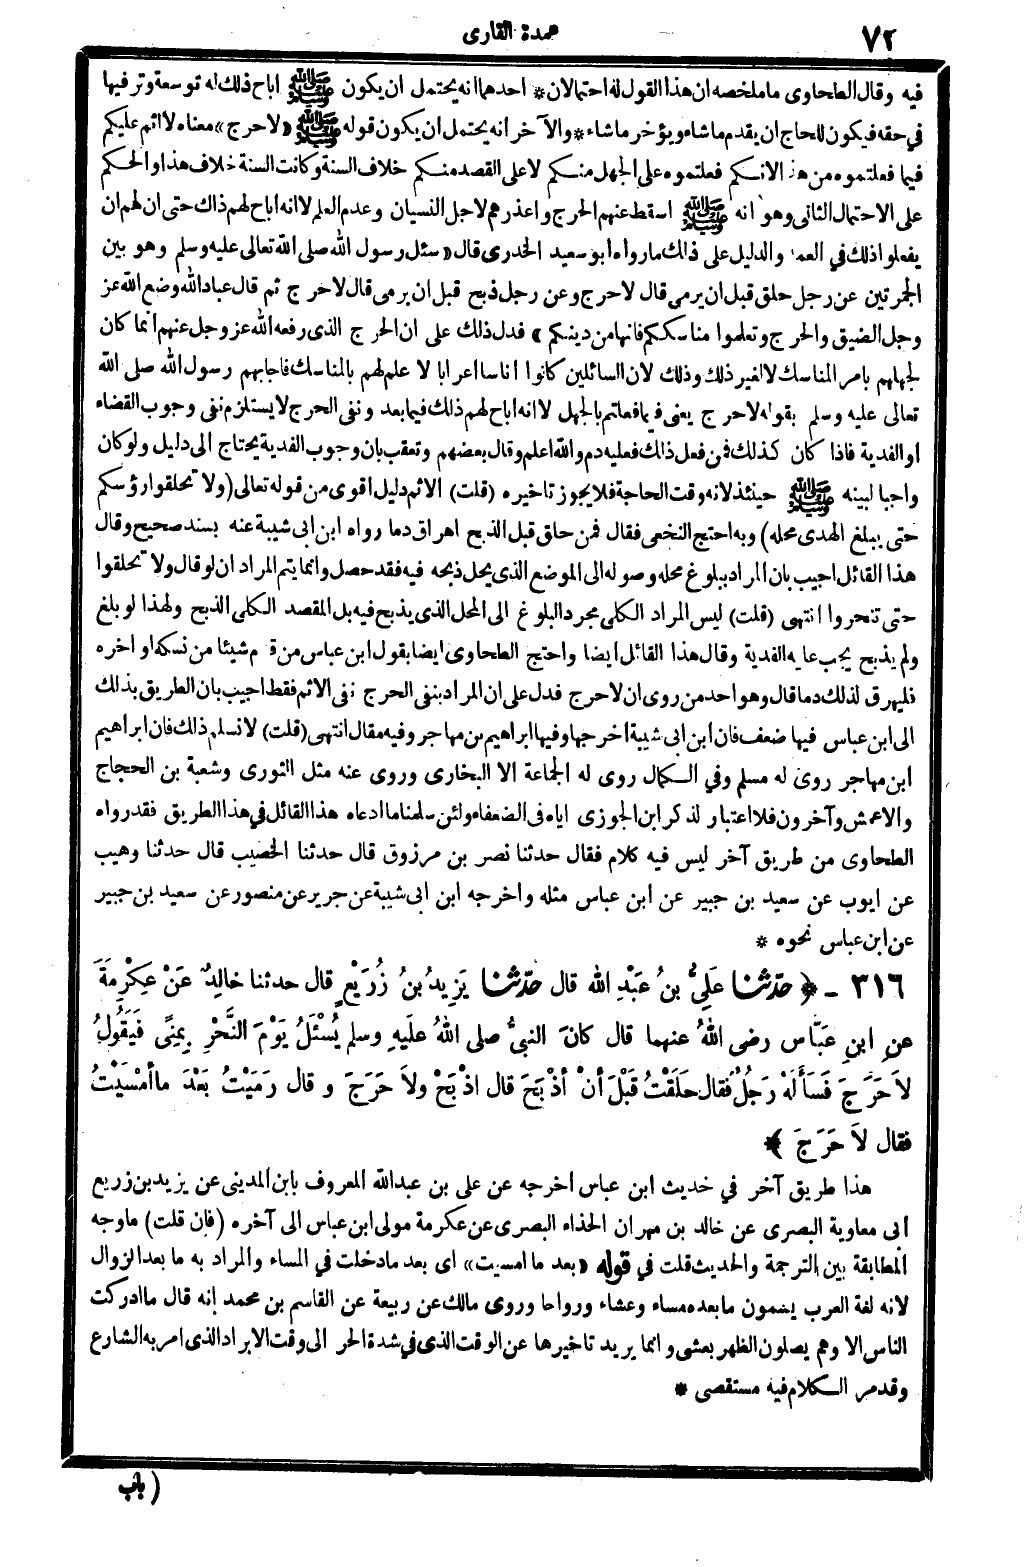 ٧٢
عمدة القارى
فيه وقال الطحاوى ما ملخصه ان هذا القول له احتمالان * احدهما انه يحتمل ان يكون ﷺ اباح ذلك له توسعة وترفيها
فى حقه فيكون للحاج ان يقدم ما شاء ويؤخر ما شاء * والآخر انه يحتمل ان يكون قوله ﷺ «لا حرج» معناه لا اثم عليكم
فيما فعلتموه من هذا لانكم فعلتموه على الجهل منكم لا على القصد منكم خلاف السنة وكانت السنة خلاف هذا والحكم
على الاحتمال الثانى وهو انه ﷺ اسقط عنهم الحرج واعذرهم لاجل النسيان وعدم العلم لا انه اباح لهم ذلك حتى ان لهم ان
يفعلوا ذلك في العمد والدليل على ذلك ما رواه ابو سعيد الخدرى قال «سئل رسول الله صلى الله تعالى عليه وسلم وهو بين
الجمرتين عن رجل حلق قبل ان يرمى قال لا حرج وعن رجل ذبح قبل ان يرمى قال لا حرج ثم قال عباد الله وضع الله عز
وجل الضيق والحرج وتعلموا مناسككم فانها من دينكم» فدل ذلك على ان الحرج الذى رفعه الله عز وجل عنهم انما كان
لجهلهم بامر المناسك لا لغير ذلك وذلك لان السائلين كانوا اناسا اعرابا لا علم لهم بالمناسك فاجابهم رسول الله صلى الله
تعالى عليه وسلم بقوله لا حرج يعنى فيما فعلتم بالجهل لا انه اباح لهم ذلك فيما بعد ونفى الحرج لا يستلزم نفى وجوب القضاء
او الفدية فاذا كان كذلك فمن فعل ذلك فعليه دم والله اعلم وقال بعضهم وتعقب بان وجوب الفدية يحتاج الى دليل ولو كان
واجبا لبينه ﷺ حينئذ لانه وقت الحاجة فلا يجوز تاخيره (قلت) لا ثم دليل اقوى من قوله تعالى (ولا تحلقوا رؤسكم
حتى يبلغ الهدى محله) وبه احتج النخعى فقال فمن حلق قبل الذبح اهراق دما رواه ابن ابى شيبة عنه بسند صحيح وقال
هذا القائل اجيب بان المراد ببلوغ محله وصوله الى الموضع الذى يحل ذبحه فيه فقد حصل وانما يتم المراد ان لو قال ولا تحلقوا
حتى تنحروا انتهى (قلت) ليس المراد الكلى مجرد البلوغ الى المحل الذى يذبح فيه بل المقصد الكلى الذبح ولهذا لو بلغ
ولم يذبح يجب عليه الفدية وقال هذا القائل ايضا واحتج الطحاوى ايضا بقول ابن عباس من قدم شيئا من نسكه او اخره
فليهرق لذلك دما قال وهو احد من روى ان لا حرج فدل على ان المراد بنفى الحرج نفى الاثم فقط اجيب بان الطريق بذلك
الى ابن عباس فيها ضعف فان ابن ابى شيبة اخرجها وفيها ابراهيم بن مهاجر وفيه مقال انتهى (قلت) لا نسلم ذلك فان ابراهيم
ابن مهاجر روى له مسلم وفي الكمال روى له الجماعة الا البخارى وروى عنه مثل الثورى وشعبة بن الحجاج
والاعمش وآخرون فلا اعتبار لذكر ابن الجوزى اياه فى الضعفاء ولئن سلمنا ما ادعاه هذا القائل في هذا الطريق فقد رواه
الطحاوى من طريق آخر ليس فيه كلام فقال حدثنا نصر بن مرزوق قال حدثنا الخصيب قال حدثنا وهيب
عن ايوب عن سعيد بن جبير عن ابن عباس مثله واخرجه ابن ابى شيبة عن جرير عن منصور عن سعيد بن جبير
عن ابن عباس نحوه *
٣١٦ - ﴿ حَدَّثنا عَلِىُّ بنُ عَبْدِ الله قال حَدَّثنا يَزِيدُ بنُ زُرَيْعٍ قال حدثنا خالِدٌ عَنْ عِكْرِمَةَ
عنِ ابنِ عَبَّاس رضى اللهُ عنهما قال كانَ النبىُّ صلى اللهُ عليهِ وسلم يُسْئَلُ يَوْمَ النَّحْرِ بِمِنًى فَيَقُولُ
لاَ حَرَجَ فَسَأَلَهُ رَجُلٌ فقال حلَقْتُ قَبْلَ أنْ أذْبَحَ قال اذْبَحْ ولاَ حَرَجَ و قال رَمَيْتُ بَعْدَ ما أمْسَيْتُ
فقال لاَ حَرَجَ ﴾
هذا طريق آخر في حديث ابن عباس اخرجه عن على بن عبدالله المعروف بابن المدينى عن يزيد بن زريع
أبى معاوية البصرى عن خالد بن مهران الحذاء البصرى عن عكرمة مولى ابن عباس الى آخره (فان قلت) ما وجه
المطابقة بين الترجمة والحديث قلت في قوله «بعد ما امسيت» اى بعد ما دخلت في المساء والمراد به ما بعد الزوال
لانه لغة العرب يسمون ما بعده مساء وعشاء ورواحا وروى مالك عن ربيعة عن القاسم بن محمد انه قال ما ادركت
الناس الا وهم يصلون الظهر بعشى وانما يريد تاخيرها عن الوقت الذى في شدة الحر الى وقت الابراد الذى امر به الشارع
وقد مر الكلام فيه مستقصى *
(باب